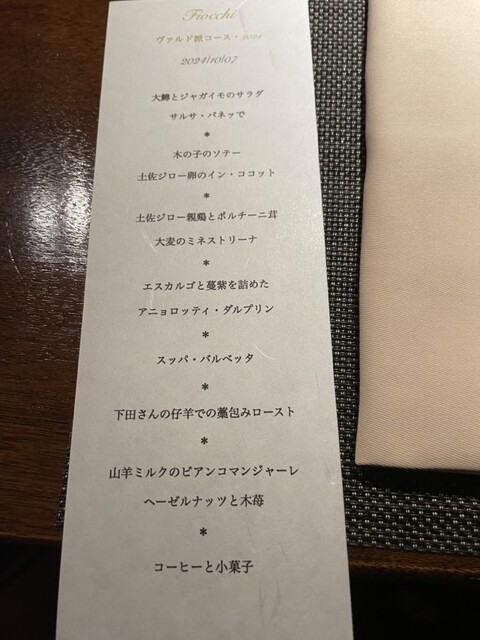 Fiocchi
ヴァルド派コース・2024
2024/10/07
大鱒とジャガイモのサラダ
サルサ・パネッで
*
木の子のソテー
土佐ジロー卵のイン・ココット
*
土佐ジロー親鶏とポルチーニ茸
大麦のミネストリーナ
*
エスカルゴと蔓紫を詰めた
アニョロッティ・ダルプリン
*
スッパ・バルベッタ
*
下田さんの仔羊での藁包みロースト
*
山羊ミルクのビアンコマンジャーレ
ヘーゼルナッツと木苺
*
コーヒーと小菓子